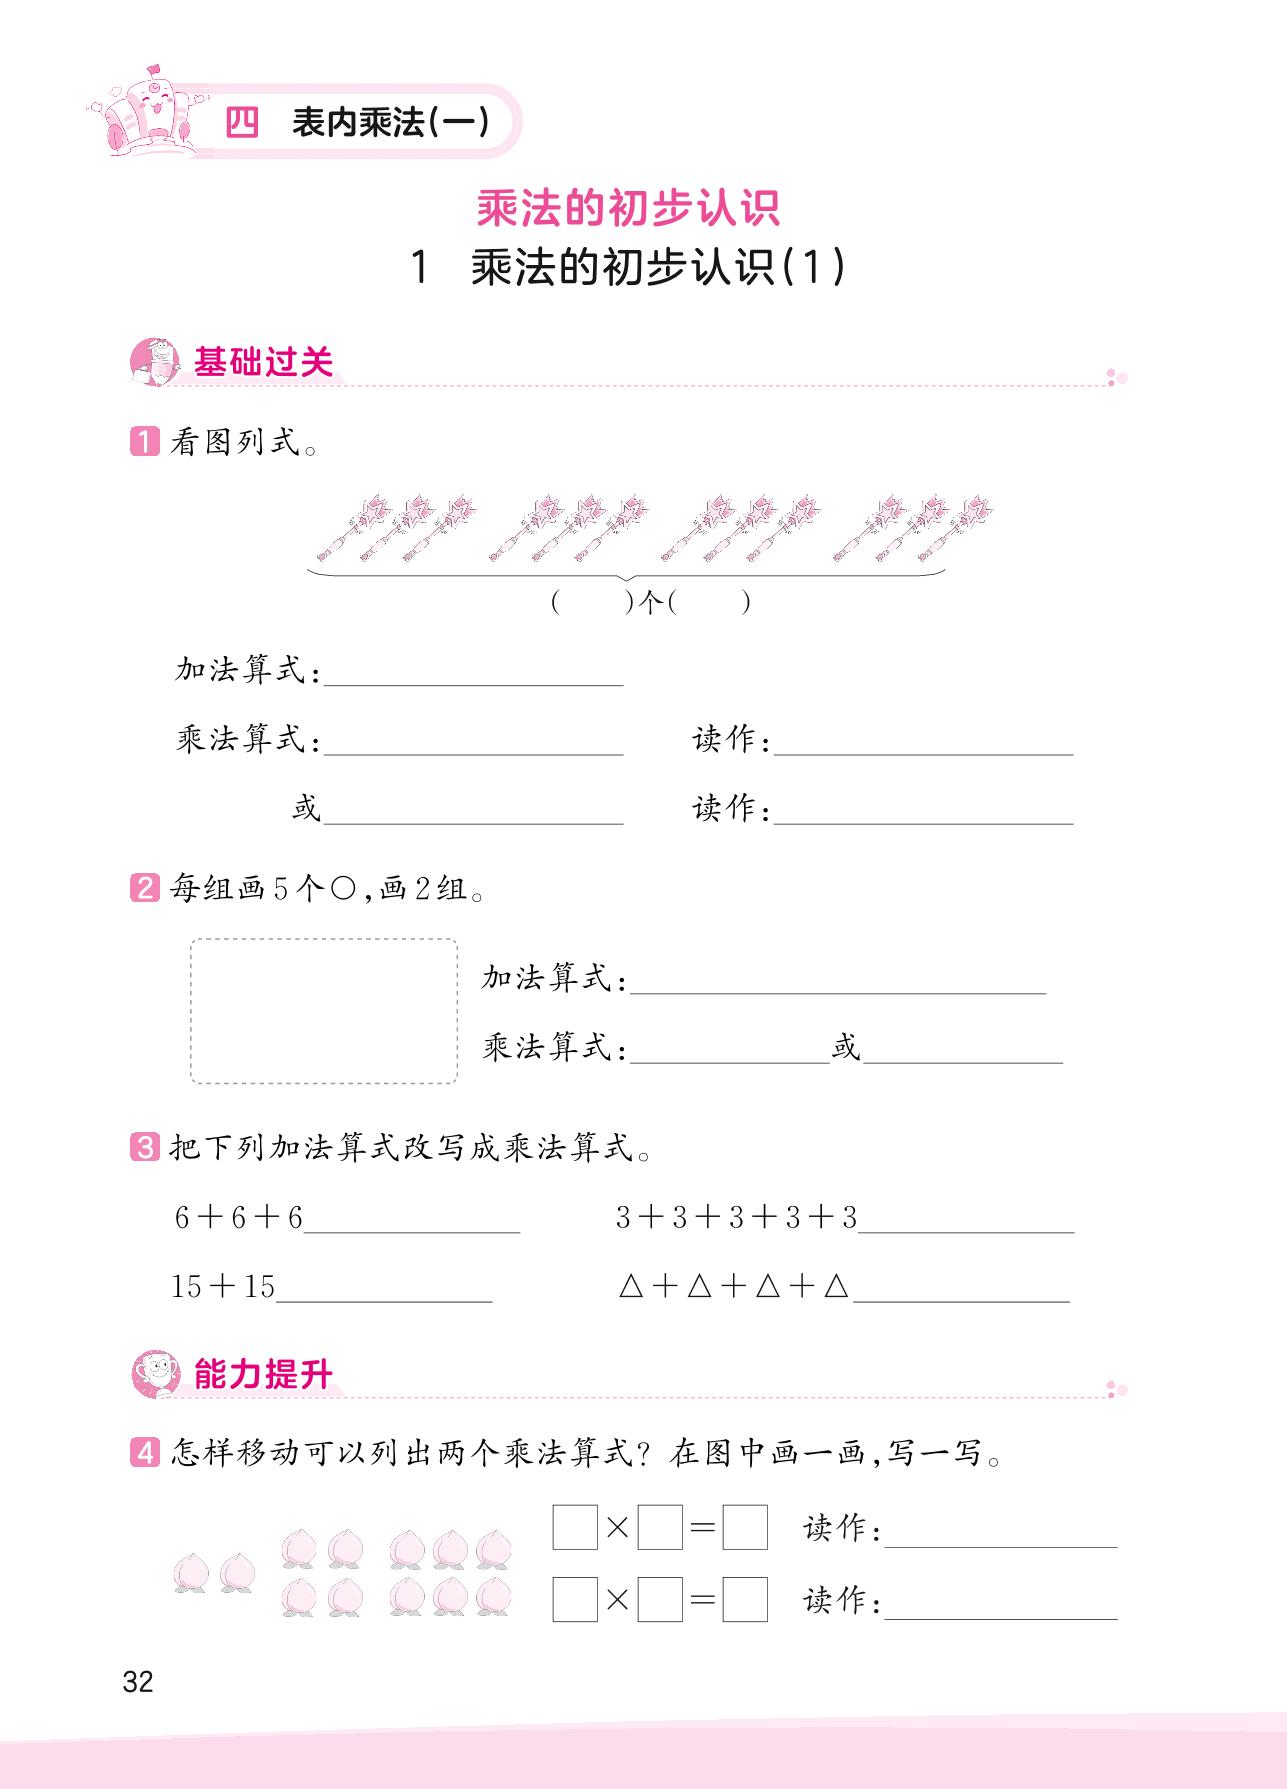 四 表内乘法(一)
乘法的初步认识
1 乘法的初步认识(1)
基础过关
1 看图列式。
( )个( )
加法算式:
乘法算式: 读作:
或 读作:
2 每组画5个○,画2组。
加法算式:
乘法算式: 或
3 把下列加法算式改写成乘法算式。
6+6+6 3+3+3+3+3
15+15 △+△+△+△
能力提升
4 怎样移动可以列出两个乘法算式? 在图中画一画,写一写。
□×□=□ 读作:
□×□=□ 读作:
32